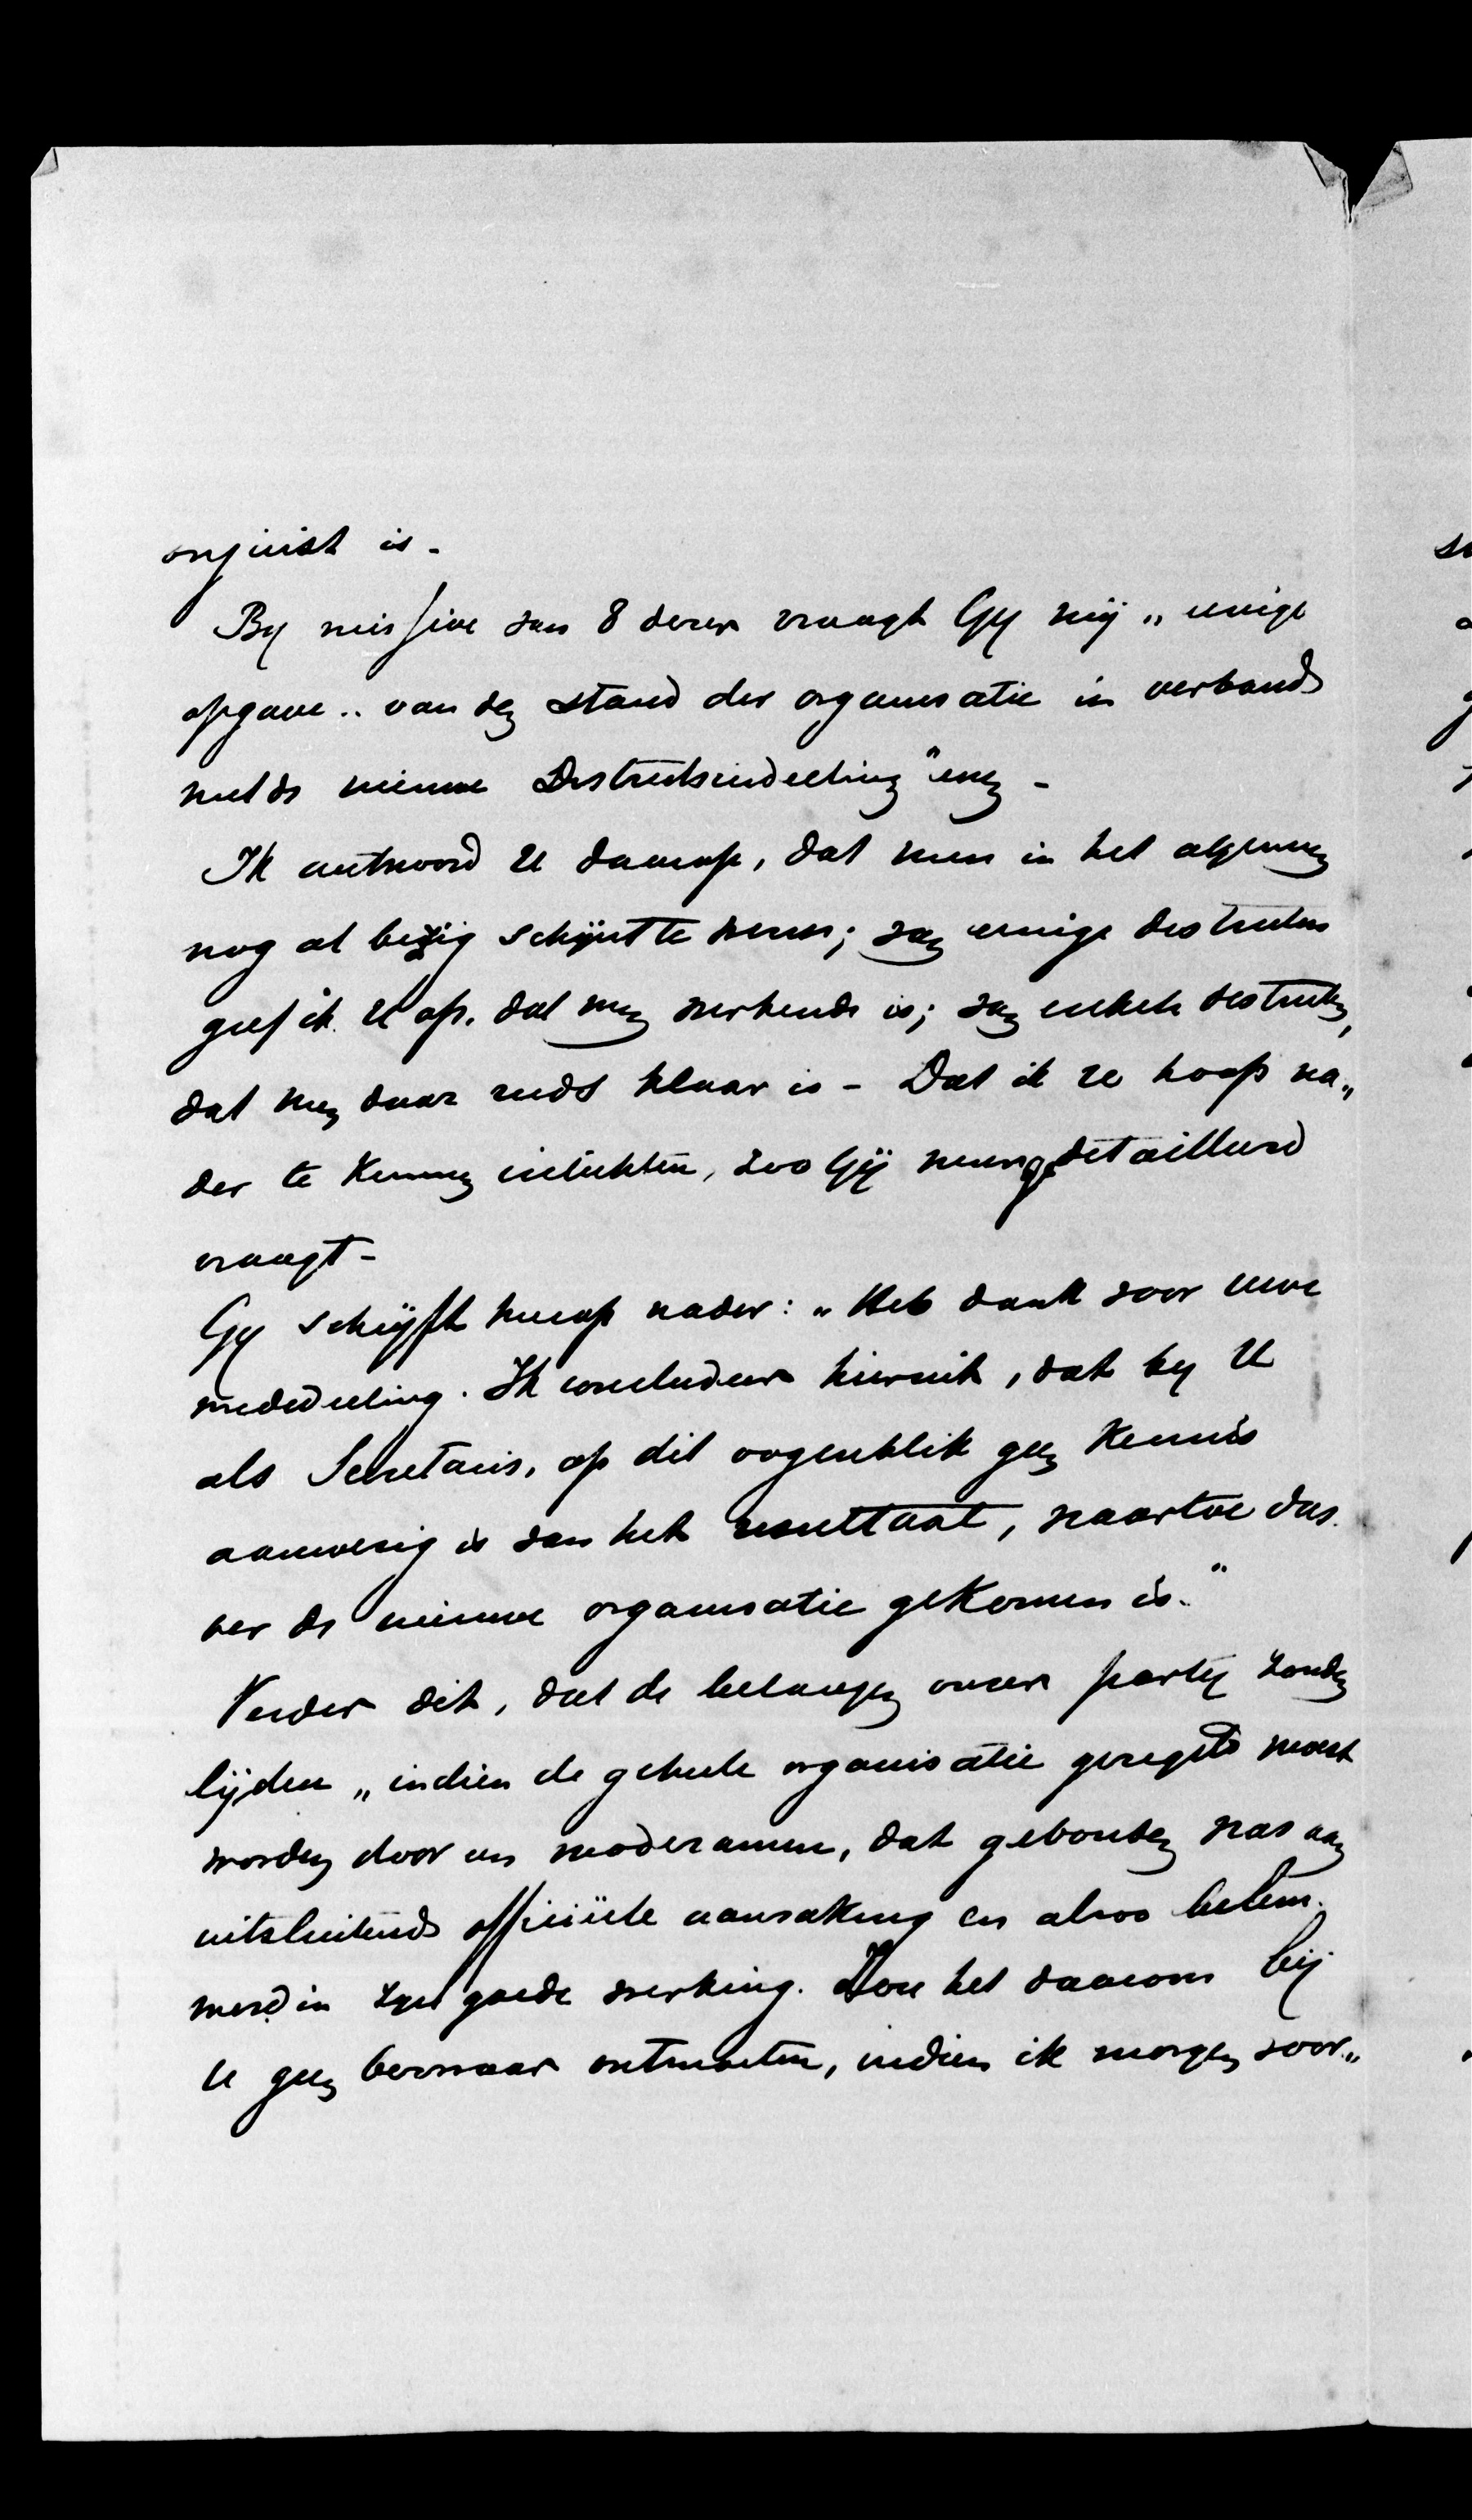 onjuist is.
By missive van 8 dezer vraagt Gy mij „eenige
opgave .. van den stand der organisatie in verband
met de nieuwe Districtsindeeling" enz -
Ik antwoord U daarop, dat men in het algemeen
nog al bezig schijnt te wezen; van eenige districten
geef ik U op, dat men werkende is; van enkele districten,
dat men daar reeds klaar is - Dat ik U hoop na„
der te kunnen inlichten, zoo Gij meer gedetailleerd
vraagt -
Gy schrijft hierop nader: „Heb dank voor uwe
mededeeling. Ik concludeer hieruit, dat by U
als Secretaris, op dit oogenblik geen kennis
aanwezig is van het resultaat, waartoe dus.
ver de nieuwe organisatie gekomen is."
Verder dit, dat de belangen onzer party zouden
lijden „indien de geheele organisatie geregeld moest
worden door een moderamen, dat gebonden was aan
uitsluitend officiëele aanraking en alzoo belem.
merd in zyn goede werking. Zou het daarom bij
U geen bezwaar ontmoeten, indien ik morgen voor„